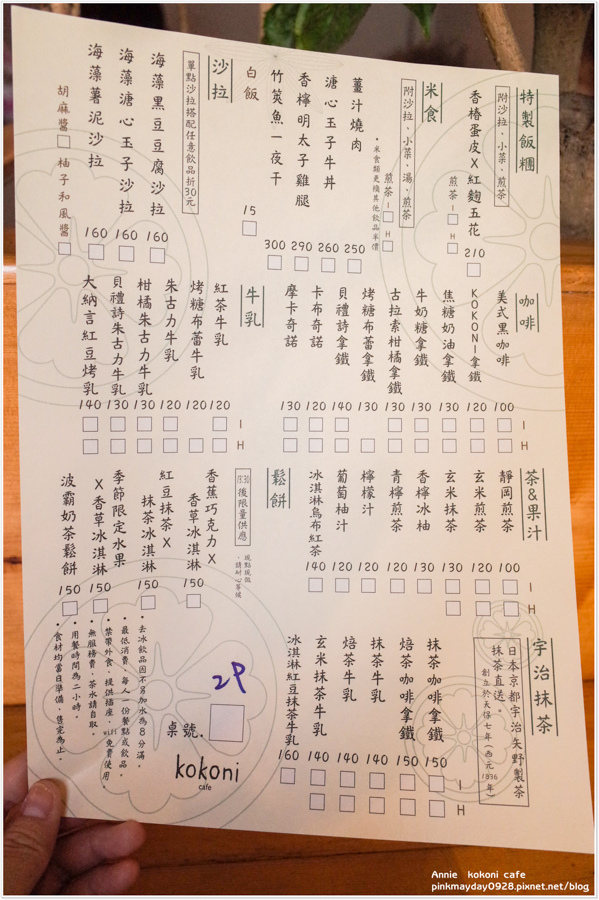 特製飯糰
附沙拉、小菜、煎茶
香椿蛋皮X紅麴五花 210
煎茶 I H
米食
附沙拉、小菜、湯、煎茶
•米食類更換其他飲品半價
煎茶 I H
薑汁燒肉 250
溏心玉子牛丼 260
香檸明太子雞腿 290
竹筴魚一夜干 300
白飯 15
沙拉
單點沙拉搭配任意飲品折30元
海藻黑豆豆腐沙拉 160
海藻溏心玉子沙拉 160
海藻薯泥沙拉 160
胡麻醬 柚子和風醬
咖啡
美式黑咖啡 100
KOKONI拿鐵 120
焦糖奶油拿鐵 130
牛奶糖拿鐵 130
古拉索柑橘拿鐵 130
烤糖布蕾拿鐵 130
貝禮詩拿鐵 140
卡布奇諾 120
摩卡奇諾 130
I
H
牛乳
紅茶牛乳 120
烤糖布蕾牛乳 120
朱古力牛乳 120
柑橘朱古力牛乳 130
貝禮詩朱古力牛乳 130
大納言紅豆烤乳 140
I
H
茶&果汁
靜岡煎茶 100
玄米煎茶 120
玄米抹茶 130
香檸冰柚 130
青檸煎茶 120
檸檬汁 120
葡萄柚汁 120
冰淇淋烏布紅茶 140
I
H
鬆餅
13:30後限量供應
現點現做,請耐心等候
香蕉巧克力X香草冰淇淋 150
紅豆抹茶X抹茶冰淇淋 150
季節限定水果X香草冰淇淋 150
波霸奶茶鬆餅 150
宇治抹茶
日本京都宇治矢野製茶
抹茶直送。
創立於天保七年(西元1836年)
抹茶咖啡拿鐵 150
焙茶咖啡拿鐵 150
抹茶牛乳 140
焙茶牛乳 140
玄米抹茶牛乳 140
冰淇淋紅豆抹茶牛乳 160
I
H
2P
桌號.
kokoni
cafe
•去冰飲品因不另加水為8分滿。
•最低消費,每人一份餐點或飲品。
•禁帶外食,提供插座,wifi免費使用。
•無服務費,茶水請自取。
•用餐時間為二小時。
•食材均當日準備,售完為止。
Annie kokoni cafe
pinkmayday0928.pixnet.net/blog